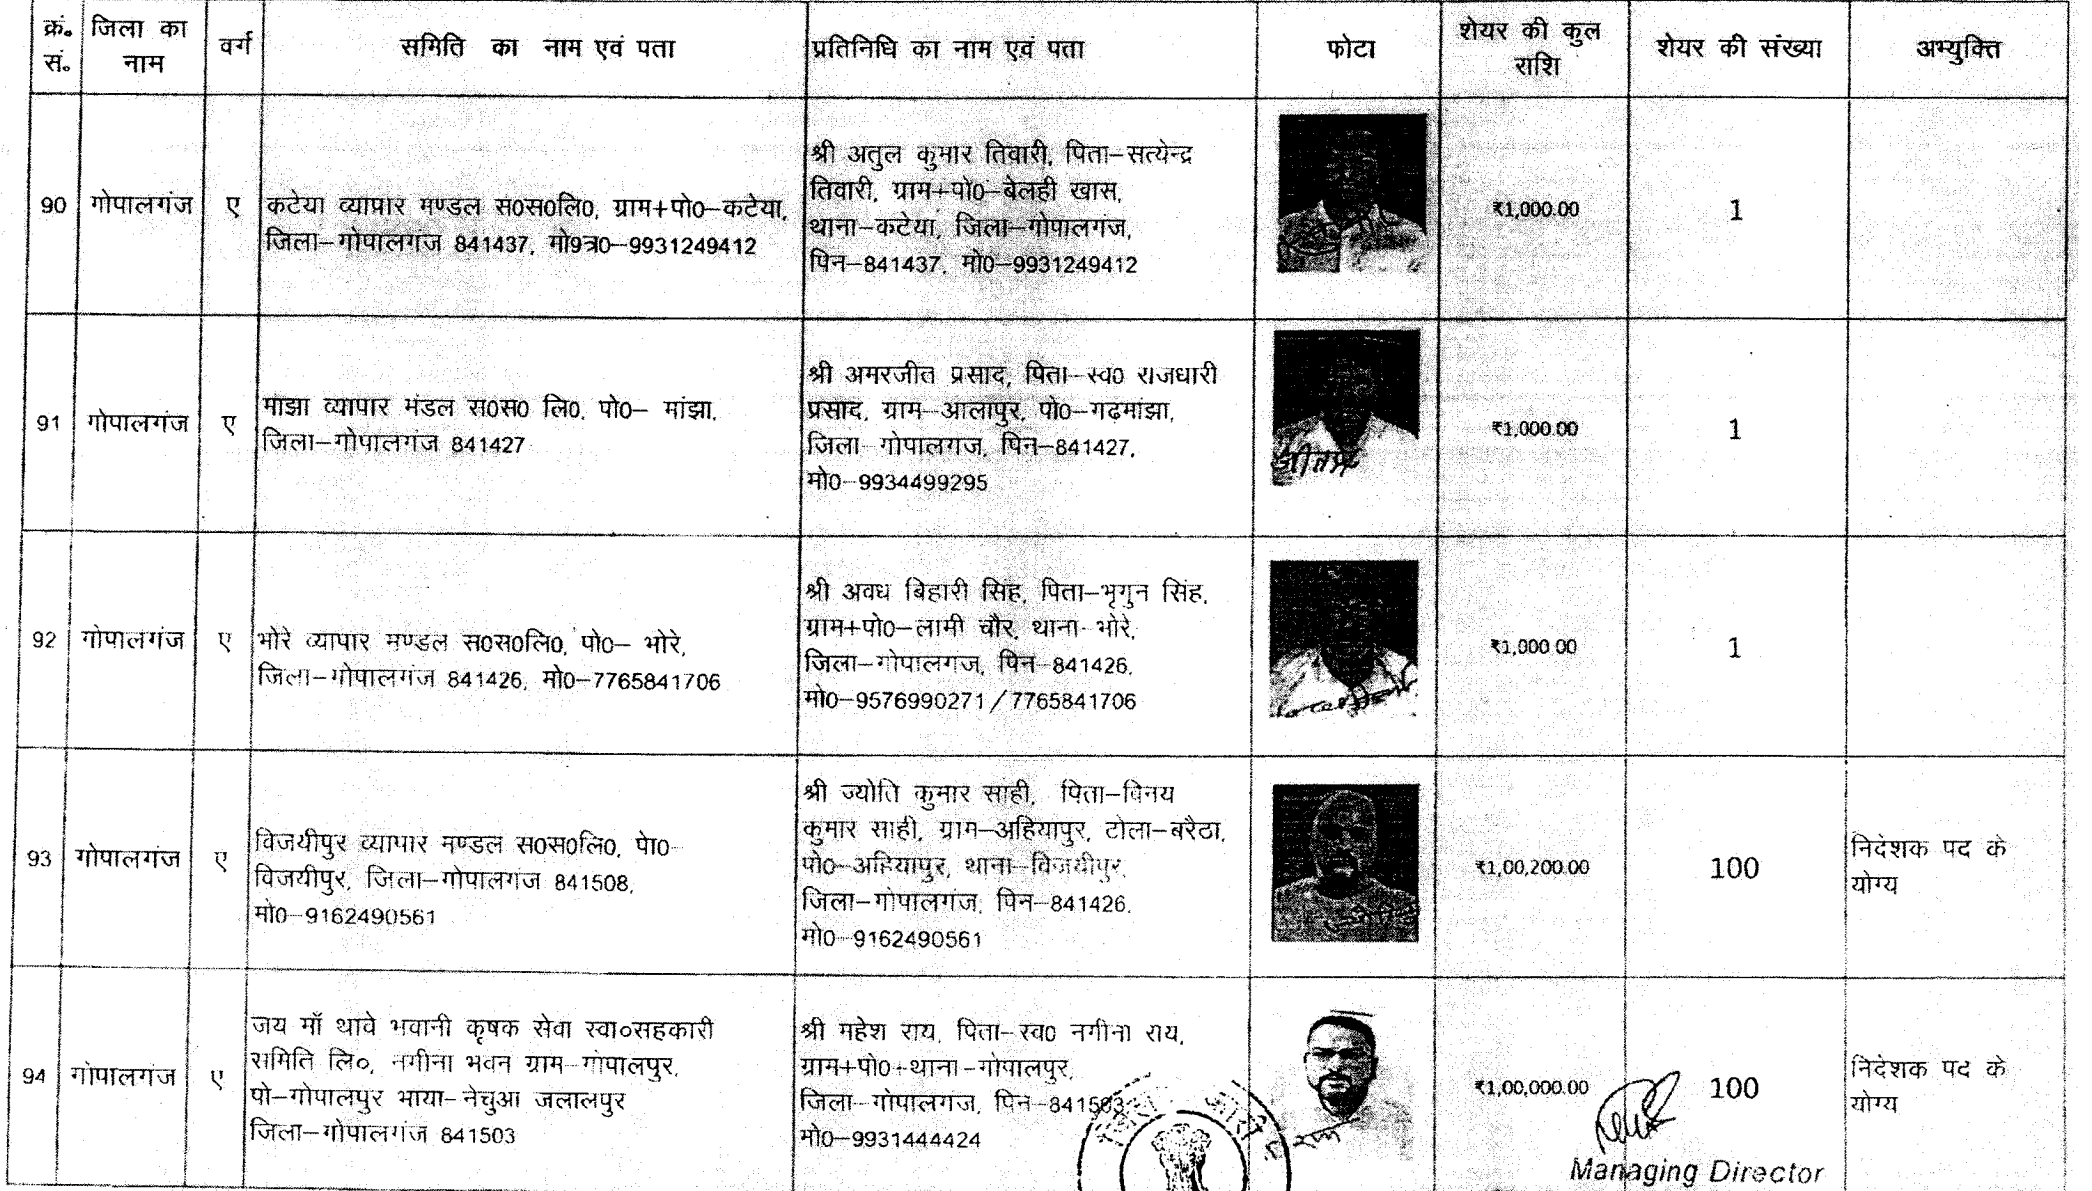 क्रं॰ सं॰
जिला का नाम
वर्ग
समिति का नाम एवं पता
प्रतिनिधि का नाम एवं पता
फोटा
शेयर की कुल राशि
शेयर की संख्या
अभ्युक्ति
90
गोपालगंज
ए
कटेया व्यापार मण्डल स0स0लि0, ग्राम+पो0–कटेया,
जिला–गोपालगंज 841437, मो9त्र0–9931249412
श्री अतुल कुमार तिवारी, पिता–सत्येन्द्र
तिवारी, ग्राम+पो0–बेलही खास,
थाना–कटेया, जिला–गोपालगंज,
पिन–841437, मो0–9931249412
₹1,000.00
1
91
गोपालगंज
ए
माझा व्यापार मंडल स0स0 लि0, पो0– मांझा,
जिला–गोपालगंज 841427
श्री अमरजीत प्रसाद, पिता–स्व0 राजधारी
प्रसाद, ग्राम–आलापुर, पो0–गढ़मांझा,
जिला–गोपालगंज, पिन–841427,
मो0–9934499295
₹1,000.00
1
92
गोपालगंज
ए
भोरे व्यापार मण्डल स0स0लि0, पो0– भोरे,
जिला–गोपालगंज 841426, मो0–7765841706
श्री अवध बिहारी सिंह, पिता–भृगुन सिंह,
ग्राम+पो0–लामी चौर, थाना–भोरे,
जिला–गोपालगंज, पिन–841426,
मो0–9576990271/7765841706
₹1,000.00
1
93
गोपालगंज
ए
विजयीपुर व्यापार मण्डल स0स0लि0, पेा0–
विजयीपुर, जिला–गोपालगंज 841508,
मो0–9162490561
श्री ज्योति कुमार साही, पिता–विनय
कुमार साही, ग्राम–अहियापुर, टोला–बरैठा,
पो0–अहियापुर, थाना–विजयीपुर,
जिला–गोपालगंज, पिन–841426,
मो0–9162490561
₹1,00,200.00
100
निदेशक पद के
योग्य
94
गोपालगंज
ए
जय माँ थावे भवानी कृषक सेवा स्वा०सहकारी
समिति लि०, नगीना भवन ग्राम–गोपालपुर,
पो–गोपालपुर भाया–नेचुआ जलालपुर
जिला–गोपालगंज 841503
श्री महेश राय, पिता–स्व0 नगीना राय,
ग्राम+पो0+थाना–गोपालपुर,
जिला–गोपालगंज, पिन–841503
मो0–9931444424
₹1,00,000.00
100
निदेशक पद के
योग्य
Managing Director